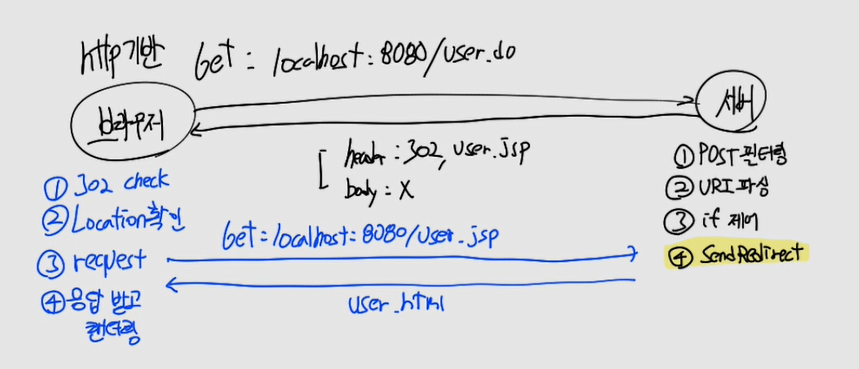 http기반 Get = localhost:8080/user.do
브라우저
서버
header : 302, user.jsp
body = X
① POST 필터링
② URI 파싱
③ if 제어
④ SendRedirect
① 302 check
② Location확인
③ request
④ 응답 받고
랜더링
Get=localhost:8080/user.jsp
user.html